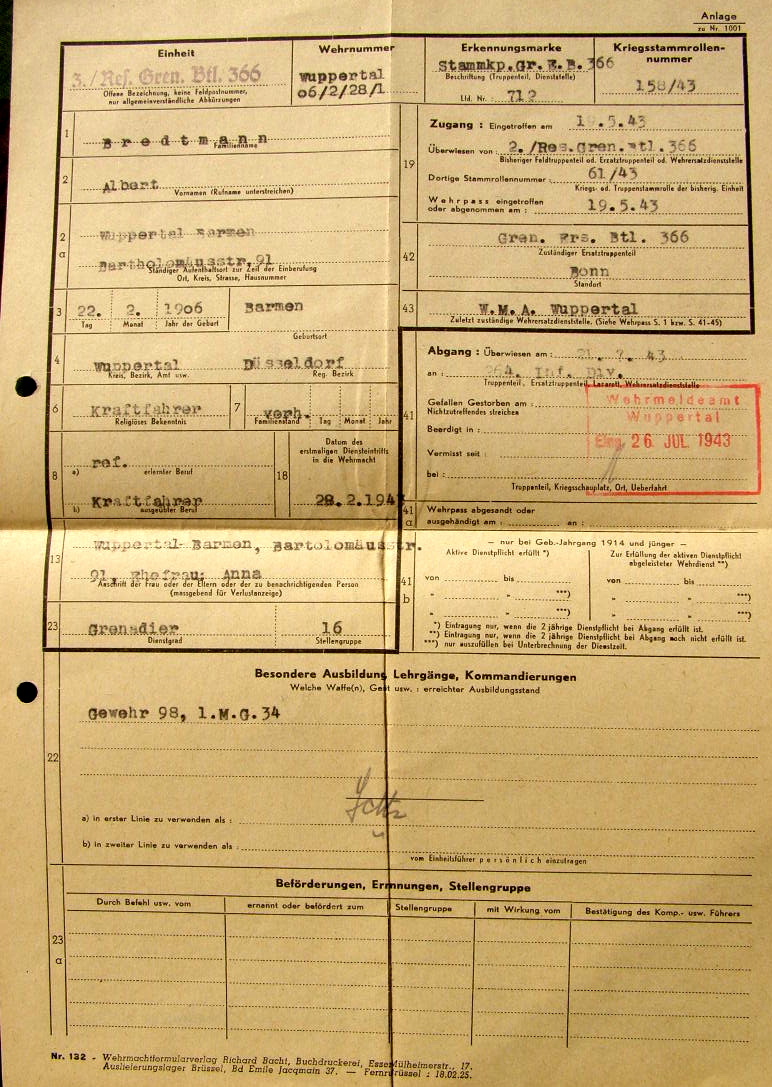 Anlage
zu Nr. 1001
Einheit
3./Res. Gren. Btl. 366
Offene Bezeichnung, keine Feldpostnummer,
nur allgemeinverständliche Abkürzungen
Wehrnummer
Wuppertal
06/2/28/1
Erkennungsmarke
Stammkp.Gr.E.B.366
Beschriftung (Truppenteil, Dienststelle)
Lfd. Nr. : 712
Kriegsstammrollen-
nummer
158/43
1
Bredtmann
Familienname
2
Albert
Vornamen (Rufname unterstreichen)
2
a
Wuppertal Barmen
Bartholomäusstr.91
Ständiger Aufenthaltsort zur Zeit der Einberufung
Ort, Kreis, Strasse, Hausnummer
3
22. 2. 1906
Tag Monat Jahr der Geburt
Barmen
Geburtsort
4
Wuppertal Düsseldorf
Kreis, Bezirk, Amt usw. Reg. Bezirk
6
Kraftfahrer
Religiöses Bekenntnis
7
verh.
Familienstand Tag Monat Jahr
8
ref.
a) erlernter Beruf
Kraftfahrer
b) ausgeübter Beruf
18
Datum des
erstmaligen Diensteintritts
in die Wehrmacht
28.2.194
13
Wuppertal-Barmen, Bartolomäusstr.
91, Ehefrau: Anna
Anschrift der Frau oder der Eltern oder der zu benachrichtigenden Person
(massgebend für Verlustanzeige)
23
Grenadier 16
Dienstgrad Stellengruppe
19
Zugang : Eingetroffen am 19.5.43
Überwiesen von : 2./Res.Gren.Btl.366
Bisheriger Feldtruppenteil od. Ersatztruppenteil od. Wehrersatzdienststelle
Dortige Stammrollennummer : 61/43
Kriegs- od. Truppenstammrolle der bisherig. Einheit
Wehrpass eingetroffen
oder abgenommen am : 19.5.43
42
Gren. Ers. Btl. 366
Zuständiger Ersatztruppenteil
Bonn
Standort
43
W.M.A. Wuppertal
Zuletzt zuständige Wehrersatzdienststelle. (Siehe Wehrpass S. 1 bzw. S. 41-45)
41
Abgang : Überwiesen am : 21.7.43
an : 264. Inf. Div.
Truppenteil, Ersatztruppenteil, Lazarett, Wehrersatzdienststelle
Gefallen Gestorben am :
Nichtzutreffendes streichen
Beerdigt in :
Vermisst seit :
bei :
Truppenteil, Kriegsschauplatz, Ort, Ueberfahrt
Wehrmeldeamt
Wuppertal
Eing. 26. JUL 1943
41
a
Wehrpass abgesandt oder
ausgehändigt am : an :
41
b
— nur bei Geb.-Jahrgang 1914 und jünger —
Aktive Dienstpflicht erfüllt *)
Zur Erfüllung der aktiven Dienstpflicht
abgeleisteter Wehrdienst **)
von bis von bis
" " ***) " " ***)
" " ***) " " ***)
*) Eintragung nur, wenn die 2 jährige Dienstpflicht bei Abgang erfüllt ist.
**) Eintragung nur, wenn die 2 jährige Dienstpflicht bei Abgang noch nicht erfüllt ist.
***) nur auszufüllen bei Unterbrechung der Dienstzeit.
22
Besondere Ausbildung, Lehrgänge, Kommandierungen
Welche Waffe(n), Gerät usw. : erreichter Ausbildungsstand
Gewehr 98, l.M.G.34
a) in erster Linie zu verwenden als :
b) in zweiter Linie zu verwenden als :
vom Einheitsführer persönlich einzutragen
23
a
Beförderungen, Ernennungen, Stellengruppe
Durch Befehl usw. vom
ernannt oder befördert zum
Stellengruppe
mit Wirkung vom
Bestätigung des Komp.- usw. Führers
Nr. 132 - Wehrmachtformularverlag Richard Bacht, Buchdruckerei, Essen, Mülheimerstr., 17.
Auslieferungslager Brüssel, Bd Emile Jacqmain 37. — Fernruf Brüssel : 18.02.25.